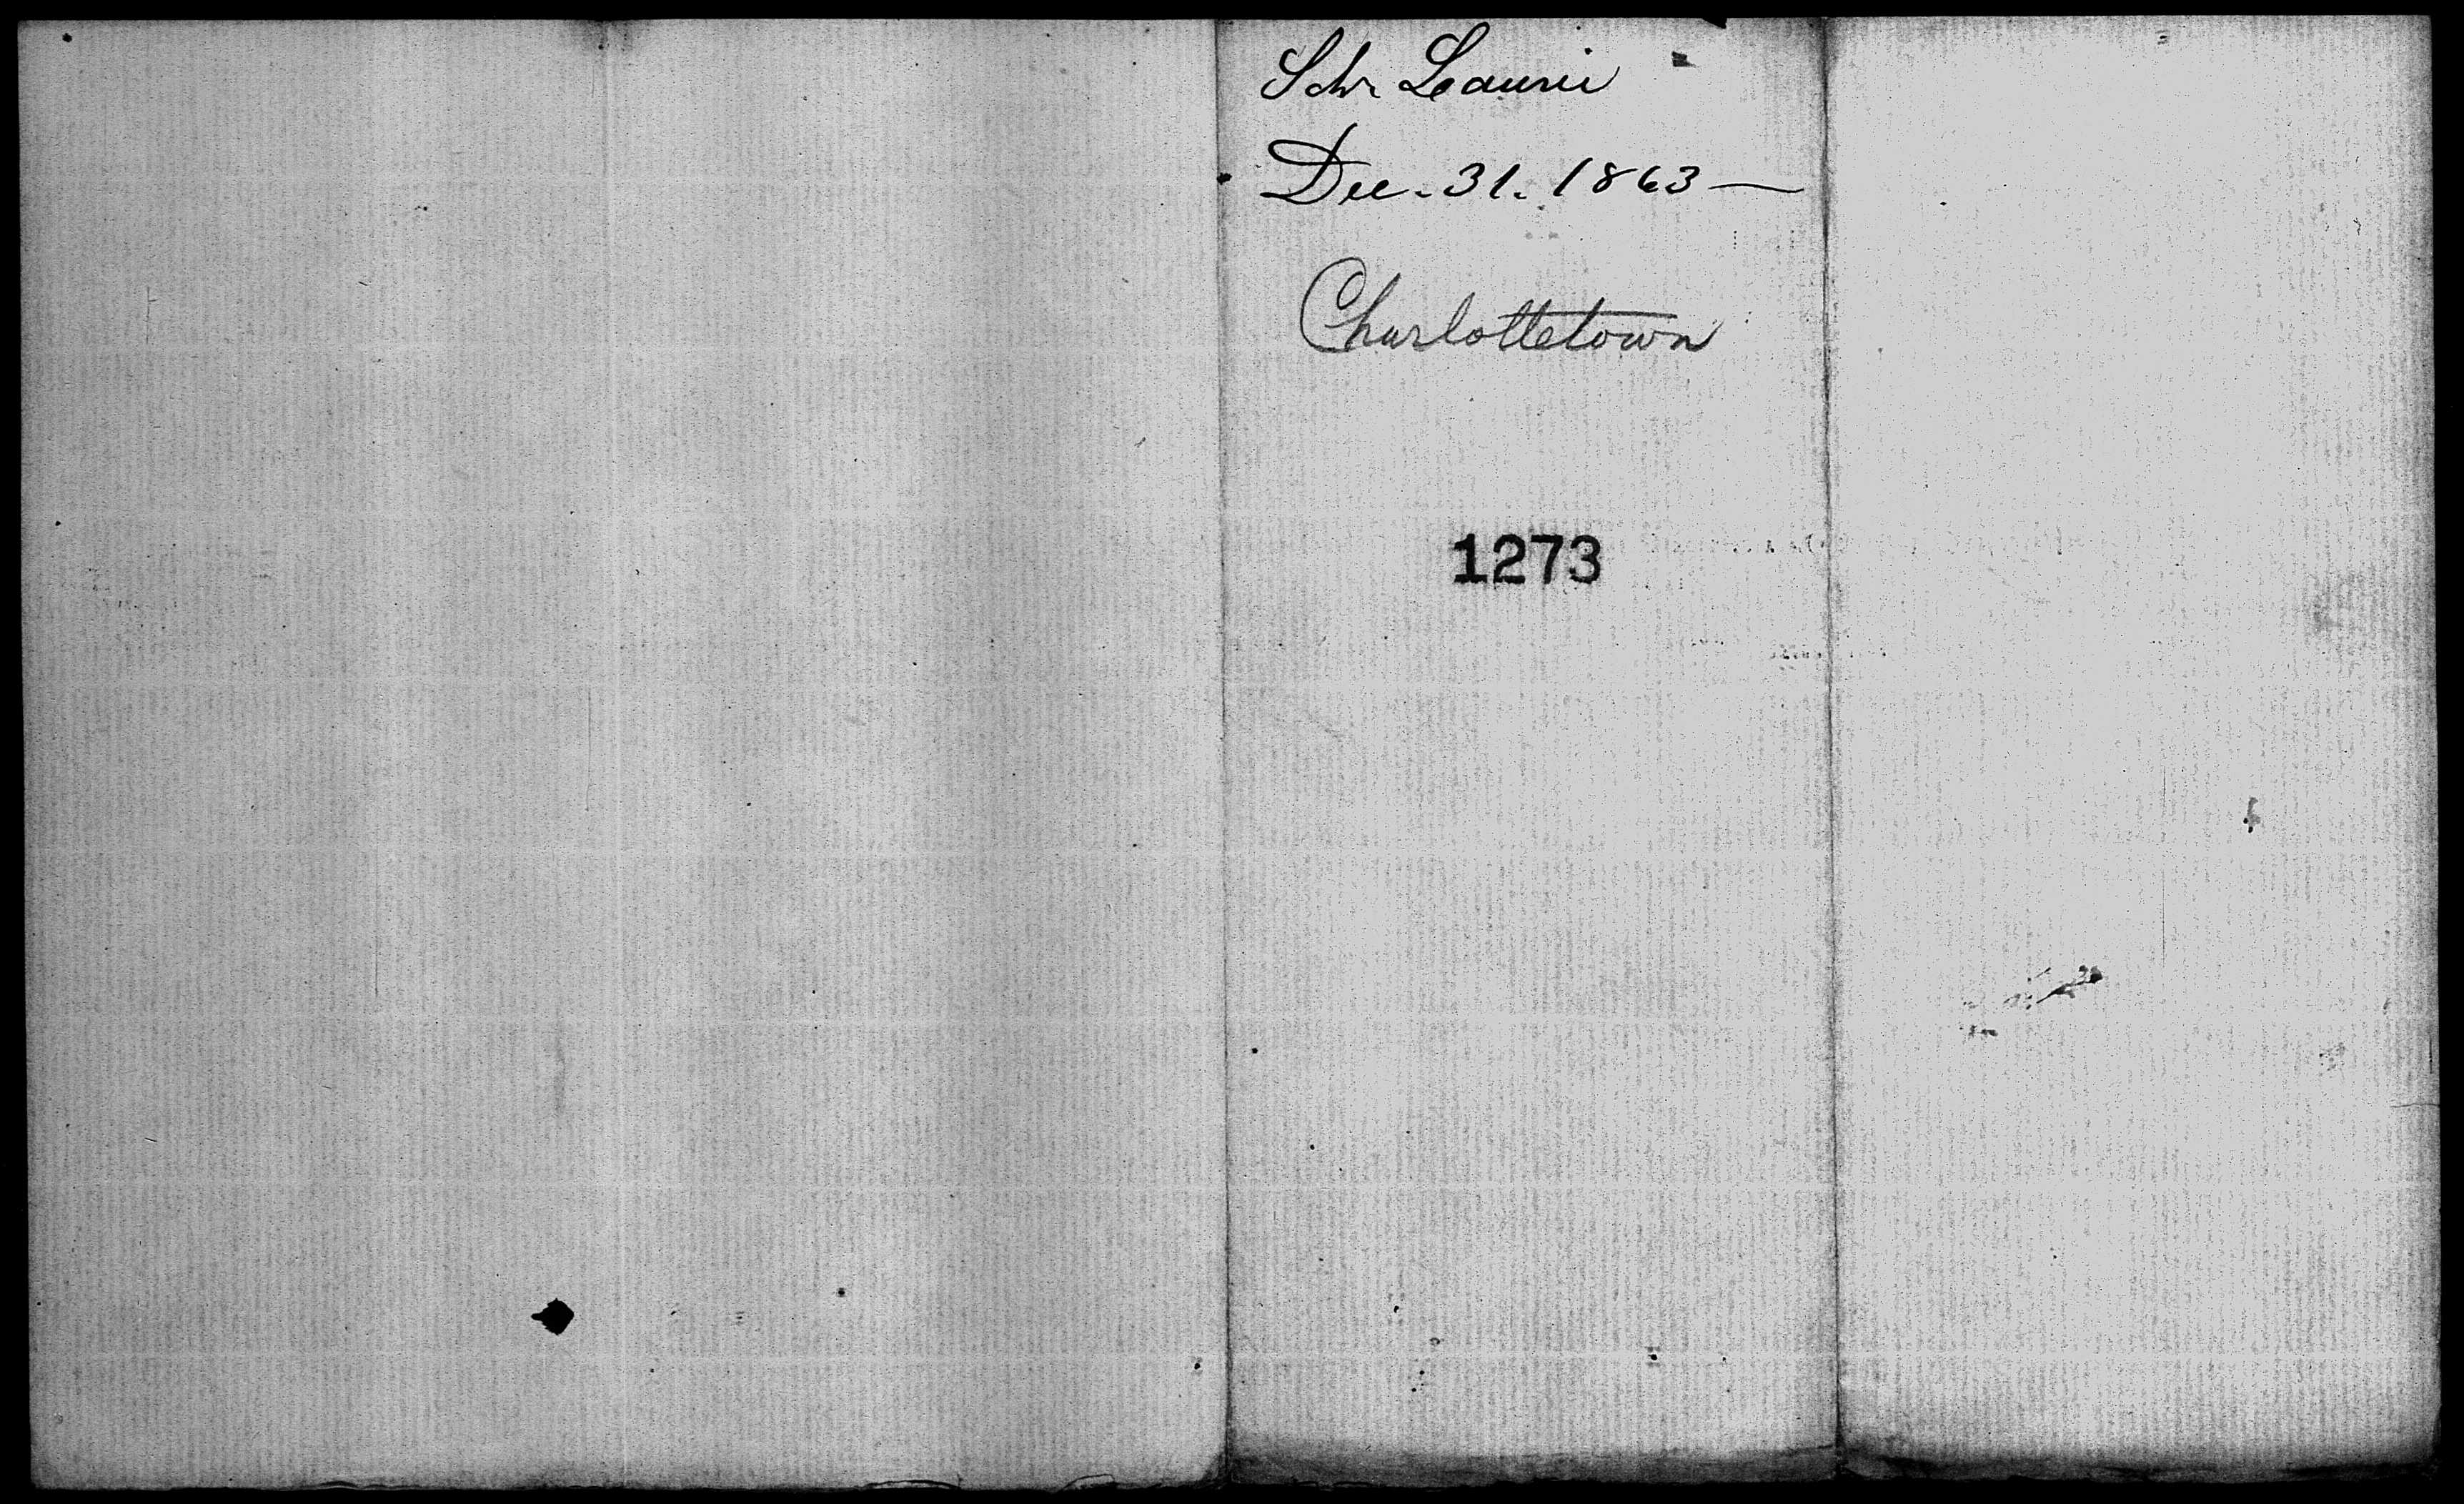 Schr Laurie
Dec. 31. 1863 —
Charlottetown
1273